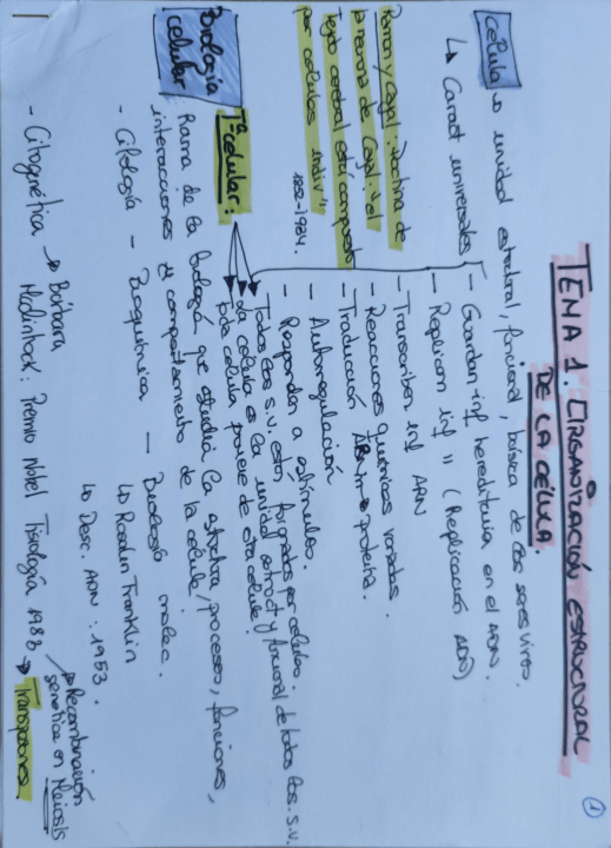 1
TEMA 1. ORGANIZACIÓN ESTRUCTURAL
DE LA CÉLULA.
Célula → unidad estructural, funcional, básica de los seres vivos.
↳ Caract universales
- Guardan inf hereditaria en el ADN.
- Replican inf " (Replicación ADN)
- Transcriben inf ARN
- Reacciones químicas variadas.
- Traducción ARNm → proteína.
- Autorregulación
- Responden a estímulos.
Ramon y Cajal: Doctrina de
la neurona de Cajal: el
Tejido cerebral está compuesto
por células indiv"
1852-1934.
Tª celular:
Todos los s.v. están formados por células.
La célula es la unidad estruct y funcional de todos los s.v.
Toda célula proviene de otra célula.
Biología
celular
: Rama de la biología que estudia la estructura, procesos, funciones,
interacciones y comportamiento de la célula.
- Citología - Bioquímica - Biología molec.
↳ Rosalin Franklin
↳ Desc. ADN: 1953.
- Citogenética → Bárbara
Mcclintock: Premio Nobel Fisiología 1983
→ Recombinación
genética en Meiosis
→ Transposones.